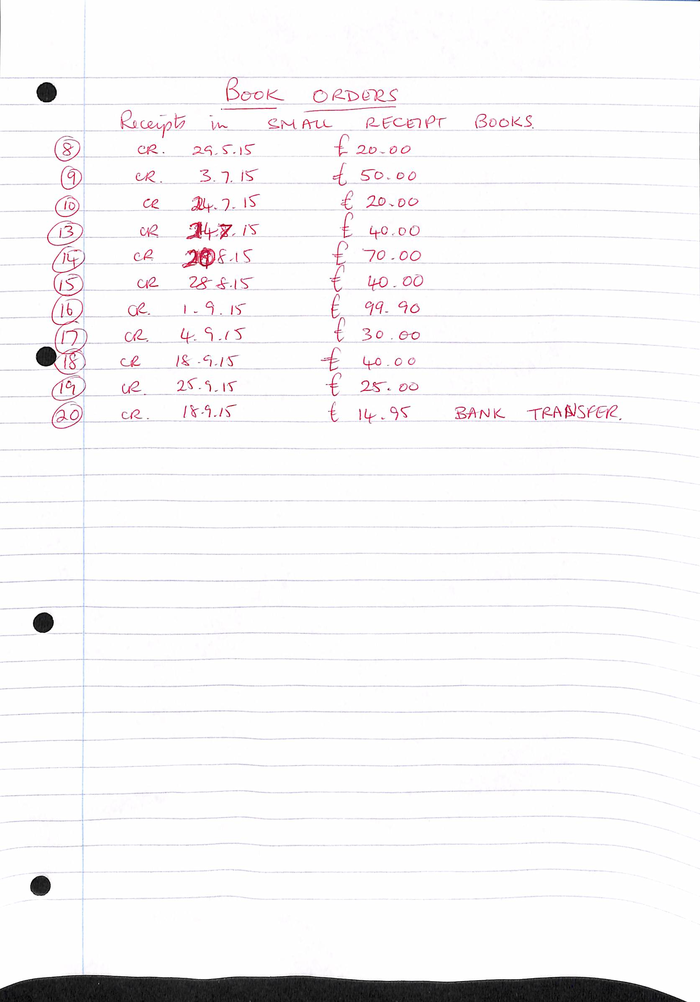 BOOK ORDERS
Receipts in SMALL RECEIPT BOOKS.
8 CR. 29.5.15 £20.00
9 CR. 3.7.15 £50.00
10 CR 24.7.15 £20.00
13 CR 15 £40.00
14 CR 8.15 £70.00
15 CR 28 8.15 £40.00
16 CR. 1.9.15 £99.90
17 CR. 4.9.15 £30.00
18 CR 18.9.15 £40.00
19 CR. 25.9.15 £25.00
20 CR. 18.9.15 £14.95 BANK TRANSFER.